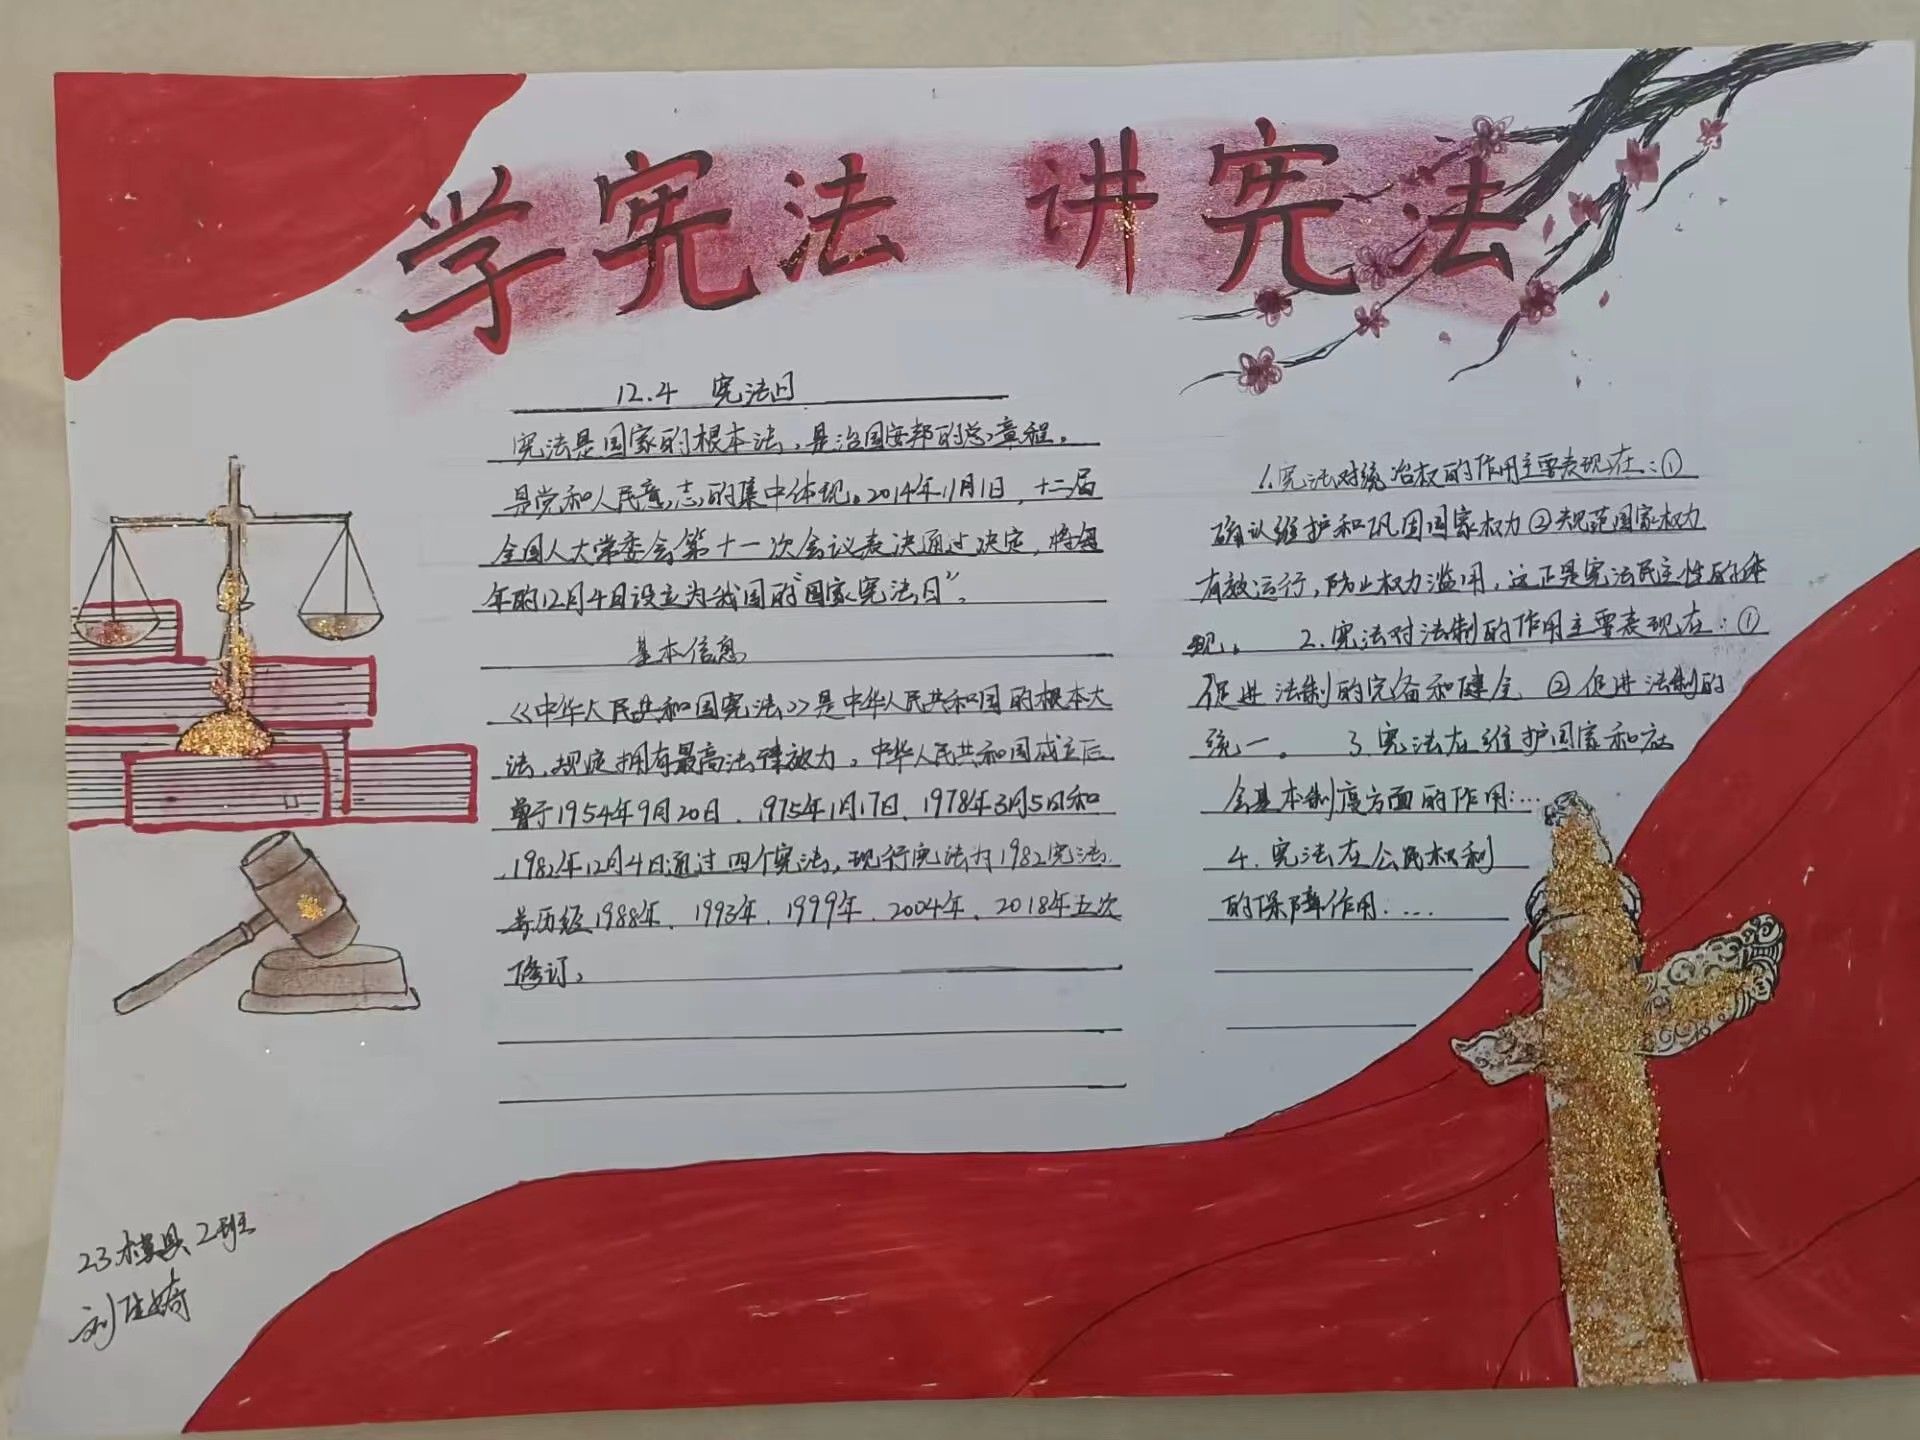 学宪法 讲宪法
12.4 宪法日
宪法是国家的根本法,是治国安邦的总章程。
是党和人民意志的集中体现。2014年11月1日,十二届
全国人大常委会第十一次会议表决通过决定,将每
年的12月4日设立为我国的“国家宪法日”。
基本信息
《中华人民共和国宪法》是中华人民共和国的根本大
法,规定拥有最高法律效力。中华人民共和国成立后
曾于1954年9月20日、1975年1月17日、1978年3月5日和
1982年12月4日通过四个宪法,现行宪法为1982宪法
并历经1988年、1993年、1999年、2004年、2018年五次
修订。
1.宪法对统治权的作用主要表现在:①
确认维护和巩固国家权力②规范国家权力
有效运行,防止权力滥用,这正是宪法民主性的体
现。 2.宪法对法制的作用主要表现在:①
促进法制的完备和健全 ②促进法制的
统一。 3.宪法在维护国家和社
会基本制度方面的作用:...
4.宪法在公民权利
的保障作用:....
23.模具2班
刘